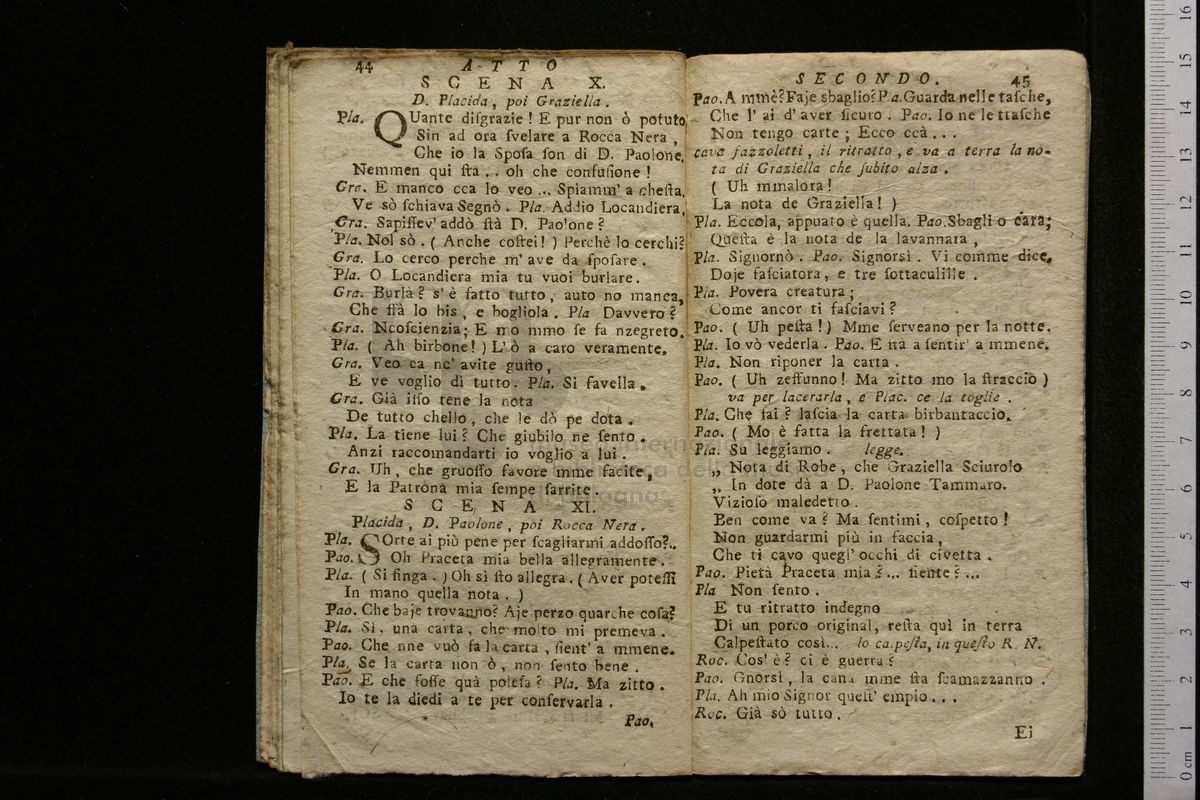 44 ATTO
SCENA X.
D. Placida, poi Graziella.
Pla. QUante diſgrazie! E pur non ò potuto
Sin ad ora ſvelare a Rocca Nera,
Che io la Spoſa ſon di D. Paolone.
Nemmen qui ſta .. oh che confuſione!
Gra. E manco cca lo veo ... Spiamm' a cheſta.
Ve sò ſchiava Segnò. Pla. Addio Locandiera.
Gra. Sapiſſev' addò ſtà D. Pao'one?
Pla. Nol sò. (Anche coſtei!) Perchè lo cerchi?
Gra. Lo cerco perche m' ave da ſpoſare.
Pla. O Locandiera mia tu vuoi burlare.
Gra. Burlà? s' è fatto tutto, auto no manca,
Che ffà lo bis, e bogliola. Pla Davvero?
Gra. Ncoſcienzia; E mo mmo ſe fa nzegreto.
Pla. (Ah birbone!) L' ò a caro veramente.
Gra. Veo ca nc' avite guſto,
E ve voglio dì tutto. Pla. Si favella.
Gra. Già iſſo tene la nota
De tutto chello, che le dò pe dota.
Pla. La tiene lui? Che giubilo ne ſento.
Anzi raccomandarti io voglio a lui.
Gra. Uh, che gruoſſo favore mme facite,
E la Patrona mia ſempe ſarrite.
SCENA XI.
Placida, D. Paolone, poi Rocca Nera.
Pla. SOrte ai più pene per ſcagliarmi addoſſo?..
Pao. Oh Praceta mia bella allegramente.
Pla. (Si finga.) Oh sì ſto allegra. (Aver poteſſi
In mano quella nota.)
Pao. Che baje trovanno? Aje perzo quarche coſa?
Pla. Sì, una carta, che molto mi premeva.
Pao. Che nne vuò fa la carta, ſient' a mmene.
Pla. Se la carta non ò, non ſento bene.
Pao. E che foſſe quà poleſa? Pla. Ma zitto.
Io te la diedi a te per conſervarla.
Pao.
SECONDO. 45
Pao. A mmè? Faje sbaglio? P a. Guarda nelle taſche,
Che l' ai d' aver ſicuro. Pao. Io ne le ttaſche
Non tengo carte; Ecco ccà...
cava fazzoletti, il ritratto, e va a terra la no-
ta di Graziella che ſubito alza.
(Uh mmalora!
La nota de Graziella!)
Pla. Eccola, appuato è quella. Pao. Sbagli o cara;
Queſta è la nota de la lavannara,
Pla. Signornò. Pao. Signorsì. Vi comme dice,
Doje faſciatora, e tre ſottaculille.
Pla. Povera creatura;
Come ancor ti faſciavi?
Pao. (Uh peſta!) Mme ſerveano per la notte.
Pla. Io vò vederla. Pao. E ttà a ſentir' a mmene.
Pla. Non riponer la carta.
Pao. (Uh zeffunno! Ma zitto mo la ſtraccio)
va per lacerarla, e Plac. ce la toglie.
Pla. Che fai? laſcia la carta birbantaccio.
Pao. (Mo è fatta la frettata!)
Pla. Su leggiamo. legge.
„ Nota di Robe, che Graziella Sciurolo
„ In dote dà a D. Paolone Tammaro.
Vizioſo maledetto.
Ben come va? Ma ſentimi, coſpetto!
Non guardarmi più in faccia,
Che ti cavo quegl' occhi di civetta.
Pao. Pietà Praceta mia?... ſiente?...
Pla Non ſento.
E tu ritratto indegno
Di un porco original, reſta quì in terra
Calpeſtato così.. lo calpeſta, in queſto R. N.
Roc. Cos' è? ci è guerra?
Pao. Gnorsì, la cana mme ſta ſcamazzanno.
Pla. Ah mio Signor queſt' empio...
Roc. Già sò tutto.
Ei